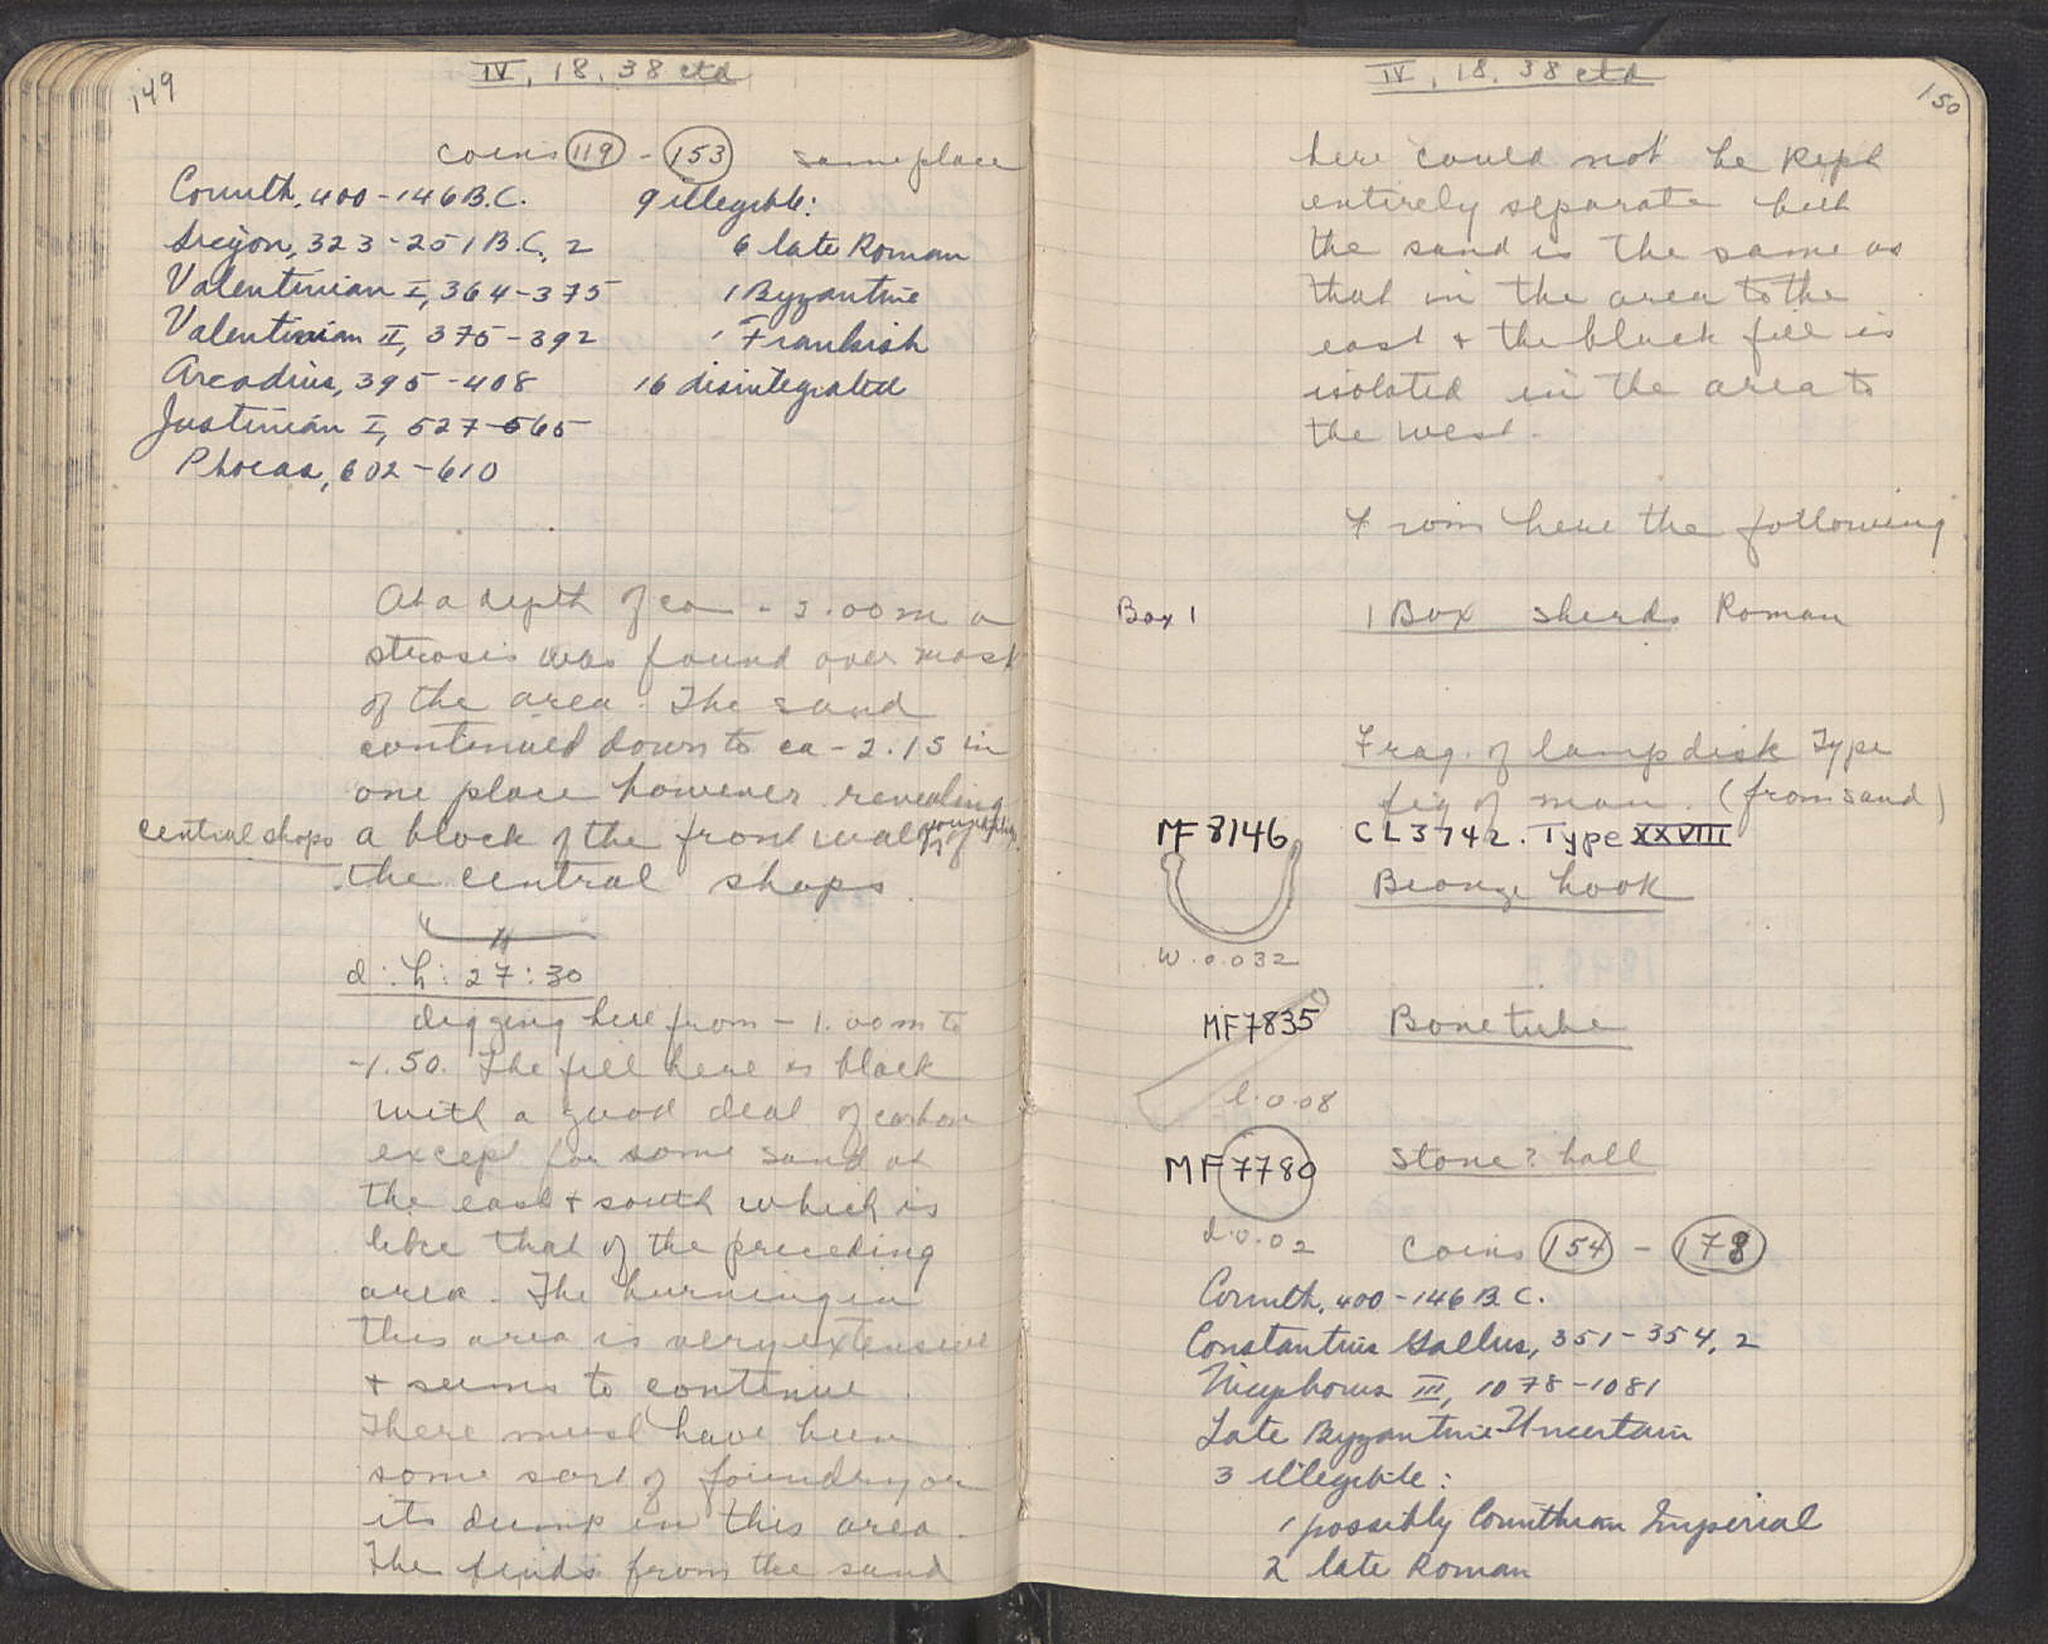 149
IV, 18. 38 ctd
coins 119 - 153 same place
Corinth, 400-146 B.C.
Sicyon, 323-251 B.C., 2
Valentinian I, 364-375
Valentinian II, 375-392
Arcadius, 395-408
Justinian I, 527-565
Phocas, 602-610
9 illegible:
6 late Roman
1 Byzantine
1 Frankish
16 disintegrated
At a depth of ca - 2.00 m a
strosis was found over most
of the area. The sand
continued down to ca - 2.15 in
one place however revealing
central shops
a block of the front wall foundation of
the central shops.
d : h : 27 : 30
digging here from - 1.00 m to
-1.50. The fill here is black
with a good deal of carbon
except for some sand at
the east + south which is
like that of the preceding
area. The burning in
this area is very extensive
+ seems to continue.
There must have been
some sort of foundry or
its dump in this area.
The finds from the sand
IV, 18. 38 ctd
150
here could not be kept
entirely separate but
the sand is the same as
that in the area to the
east + the black fill is
isolated in the area to
the west.
From here the following
Box 1
1 Box sherds Roman
Frag. of lamp disk Type
fig of man. (from sand)
CL 3742. Type XXVIII
MF 8146
Bronze hook
W. 0.032
MF 7835
Bone tube
l. 0.08
MF 7780
Stone? ball
d. 0.02
coins 154 - 178
Corinth, 400-146 B.C.
Constantius Gallus, 351-354, 2
Nicephorus III, 1078-1081
Late Byzantine Uncertain
3 illegible:
1 possibly Corinthian Imperial
2 late Roman